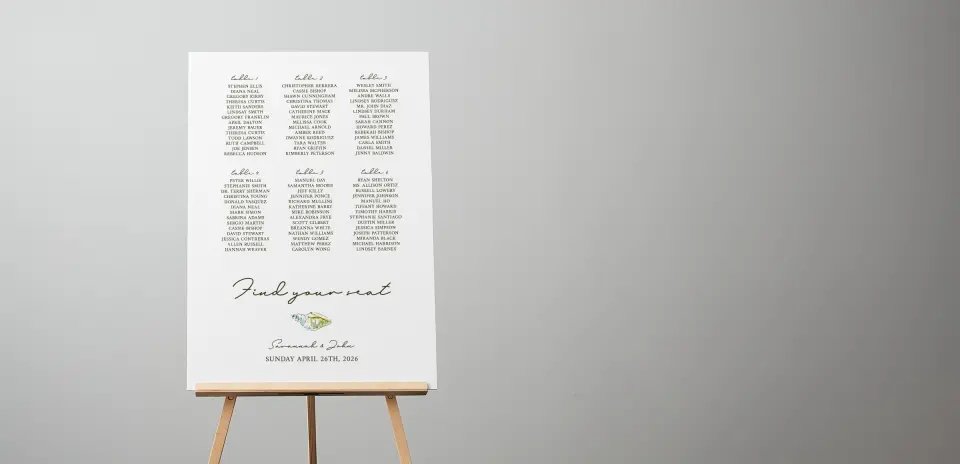 table 1
STEPHEN ELLIS
DIANA NEAL
GREGORY KIRBY
THERESA CURTIS
KEITH SANDERS
LINDSAY SMITH
GREGORY FRANKLIN
APRIL DALTON
JEREMY BAUER
THERESA CURTIS
TODD LAWSON
RUTH CAMPBELL
JOE JENSEN
REBECCA HUDSON
table 2
CHRISTOPHER HERRERA
CASSIE BISHOP
SHAWN CUNNINGHAM
CHRISTINA THOMAS
DAVID STEWART
CATHERINE MACK
MAURICE JONES
MELISSA COOK
MICHAEL ARNOLD
AMBER REED
DWAYNE RODRIGUEZ
TARA WALTER
RYAN GRIFFIN
KIMBERLY PETERSON
table 3
WESLEY SMITH
MELISSA MCPHERSON
ANDRE WALLS
LINDSEY RODRIGUEZ
MR. JOHN DIAZ
LINDSEY DURHAM
PAUL BROWN
SARAH CANNON
HOWARD PEREZ
REBEKAH BISHOP
JAMES WILLIAMS
CARLA SMITH
DANIEL MILLER
JENNY BALDWIN
table 4
PETER WILLIS
STEPHANIE SMITH
DR. TERRY SHERMAN
CHRISTINA YOUNG
RONALD VASQUEZ
DIANA NEAL
MARK SIMON
SABRINA ADAMS
SERGIO MARTIN
CASSIE BISHOP
DAVID STEWART
JESSICA CONTRERAS
ALLEN RUSSELL
HANNAH WEAVER
table 5
MANUEL DAY
SAMANTHA MOORE
JEFF KELLY
JENNIFER PONCE
RICHARD MULLINS
KATHERINE BARRY
MIKE ROBINSON
ALEXANDRA FRYE
SCOTT GILBERT
BREANNA WHITE
NATHAN WILLIAMS
WENDY GOMEZ
MATTHEW PEREZ
CAROLYN WONG
table 6
RYAN SHELTON
MS. ALLISON ORTIZ
RUSSELL LOWERY
JENNIFER JOHNSON
MANUEL HO
TIFFANY HOWARD
TIMOTHY HARRIS
STEPHANIE SANTIAGO
DUSTIN MILLER
JESSICA SIMPSON
JOSEPH PATTERSON
MIRANDA BLACK
MICHAEL HARRISON
LINDSEY BARNES
Find your seat
Savannah & John
SUNDAY APRIL 26TH, 2026